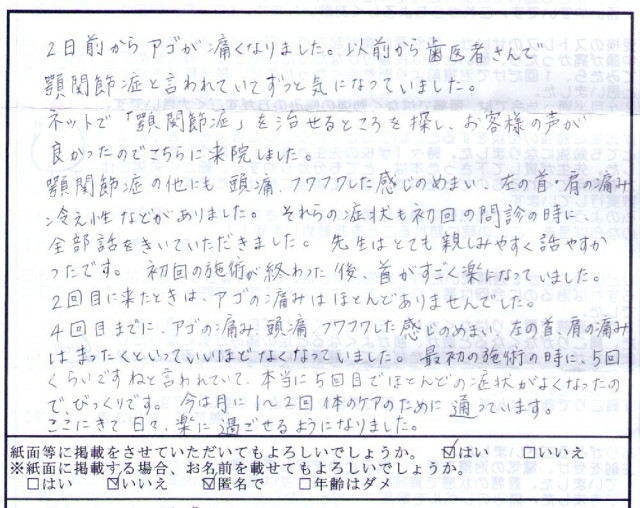 2日前からアゴが痛くなりました。以前から歯医者さんで
顎関節症と言われていてずっと気になっていました。
ネットで「顎関節症」を治せるところを探し、お客様の声が
良かったのでこちらに来院しました。
顎関節症の他にも頭痛、フワフワした感じのめまい、左の首・肩の痛み
冷え性などがありました。それらの症状も初回の問診の時に、
全部話をきいていただきました。先生はとても親しみやすく話やすか
ったです。初回の施術が終わった後、首がすごく楽になっていました。
2回目に来たときは、アゴの痛みはほとんどありませんでした。
4回目までに、アゴの痛み、頭痛、フワフワした感じのめまい、左の首、肩の痛み
はまったくといっていいほどなくなっていました。最初の施術の時に、5回
くらいですねと言われていて、本当に5回目でほとんどの症状がよくなったの
で、びっくりです。今は月に1〜2回体のケアのために通っています。
ここにきて日々、楽に過ごせるようになりました。
紙面等に掲載をさせていただいてもよろしいでしょうか。 ☑はい □いいえ
※紙面に掲載する場合、お名前を載せてもよろしいでしょうか。
□はい ☑いいえ ☑匿名で □年齢はダメ